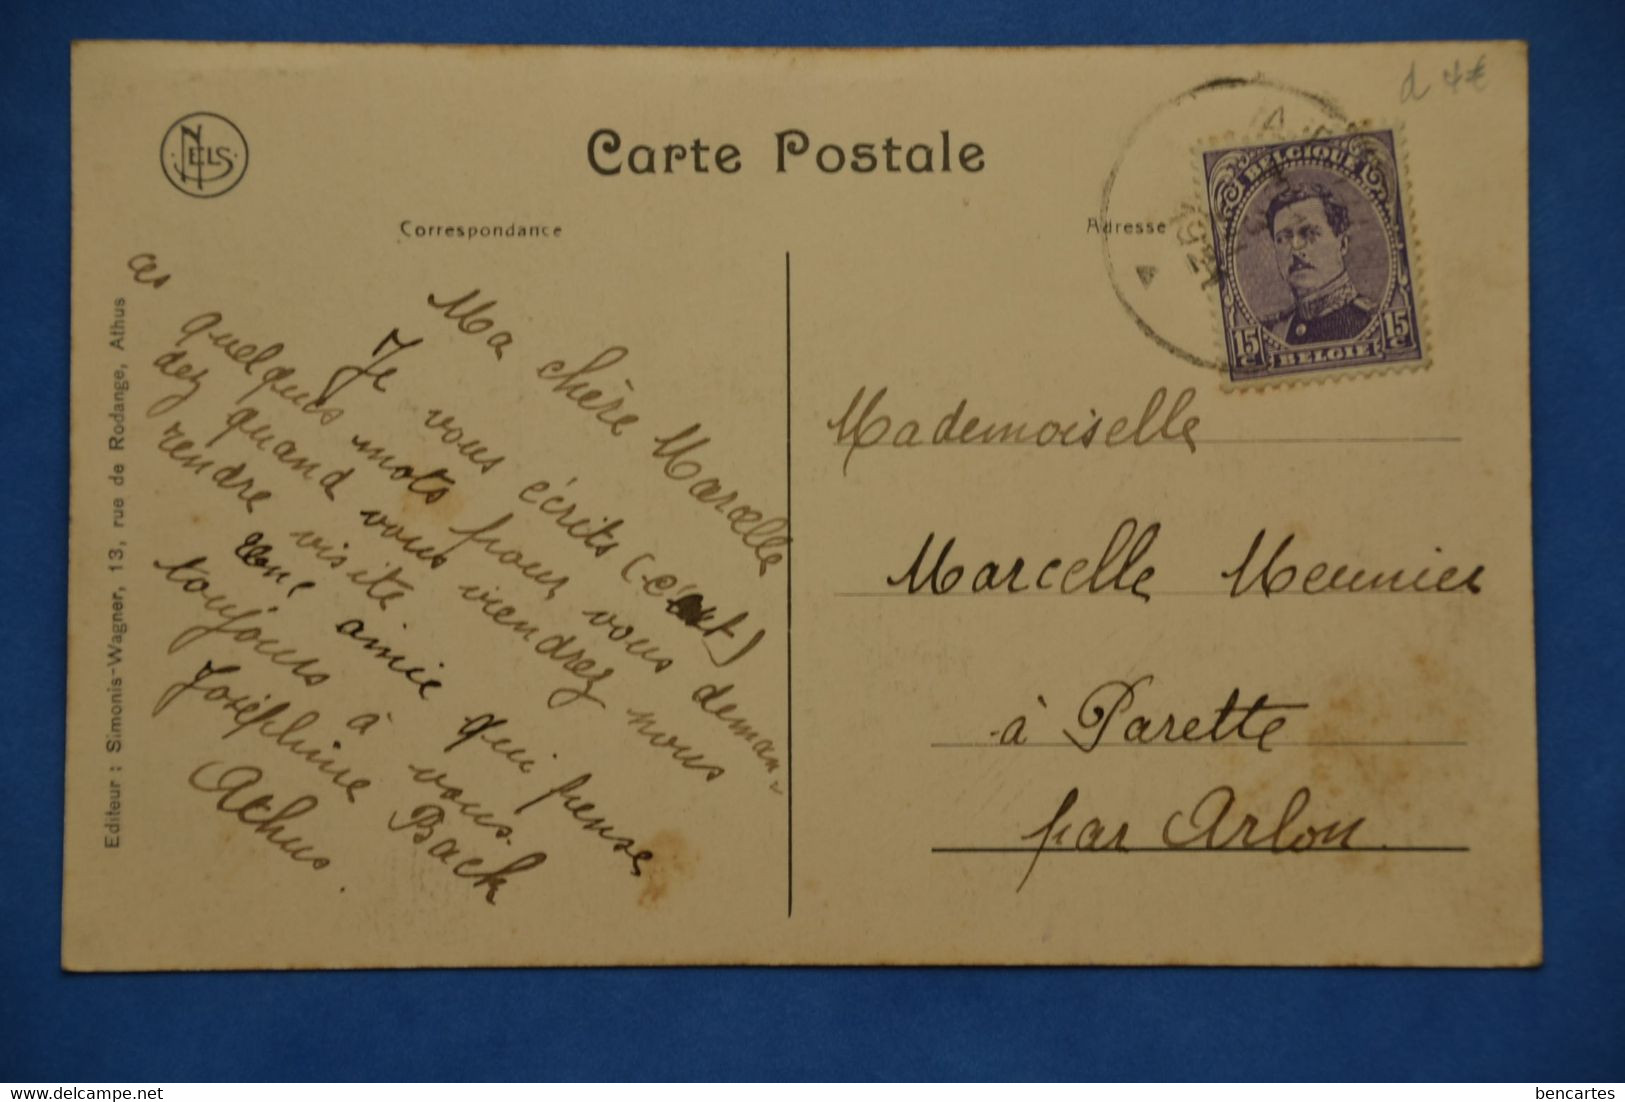 NELS
Carte Postale
Correspondance
Adresse
d 4€
BELGIQUE
15 c
15 c
BELGIE
Editeur : Simonis-Wagner, 13, rue de Rodange, Athus
Ma chère Marcelle
Je vous écrits (                )
ces quelques mots pour vous deman-
dez quand vous viendrez nous
rendre visite
une amie qui pense
toujours à vous.
Joséphine Back
Athus.
Mademoiselle
Marcelle Meunier
à Parette
par Arlon.
bencartes